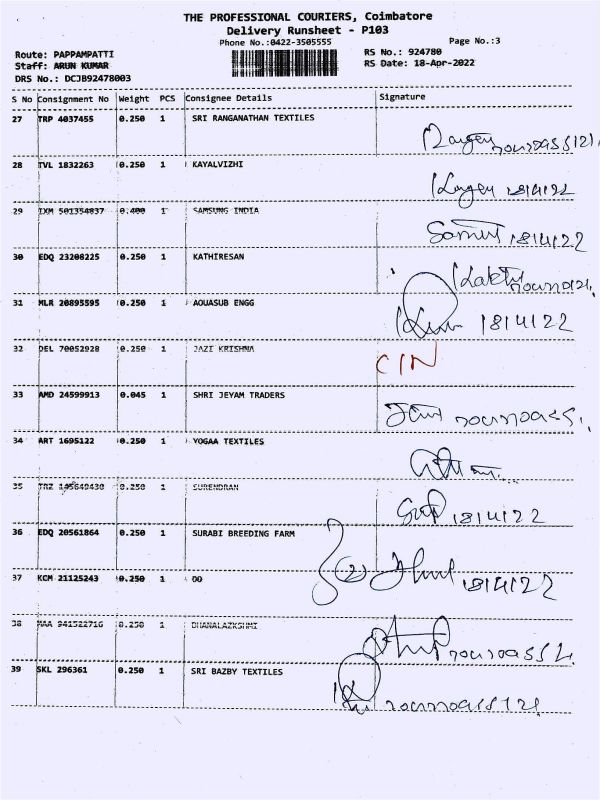 THE PROFESSIONAL COURIERS, Coimbatore
Delivery Runsheet - P103
Phone No.:0422-3505555
Page No.:3
Route: PAPPAMPATTI
RS No.: 924780
Staff: ARUN KUMAR
RS Date: 18-Apr-2022
DRS No.: DCJB92478003
S No Consignment No Weight PCS Consignee Details Signature
27 TRP 4037455 0.250 1 SRI RANGANATHAN TEXTILES
28 TVL 1832263 0.250 1 KAYALVIZHI
18/4/22
29 IXM 501354837 0.400 1 SAMSUNG INDIA
18/4/22
30 EDQ 23208225 0.250 1 KATHIRESAN
31 MLR 20895595 0.250 1 AOUASUB ENGG
18/4/22
32 DEL 70052928 0.250 1 JAZI KRISHNA
CIN
33 AMD 24599913 0.045 1 SHRI JEYAM TRADERS
34 ART 1695122 0.250 1 YOGAA TEXTILES
35 TRZ 145649430 0.250 1 SURENDRAN
18/4/22
36 EDQ 20561864 0.250 1 SURABI BREEDING FARM
37 KCM 21125243 0.250 1 OO
2
18/4/22
38 MAA 941522716 0.250 1 DHANALAZKSHMI
39 SKL 296361 0.250 1 SRI BAZBY TEXTILES